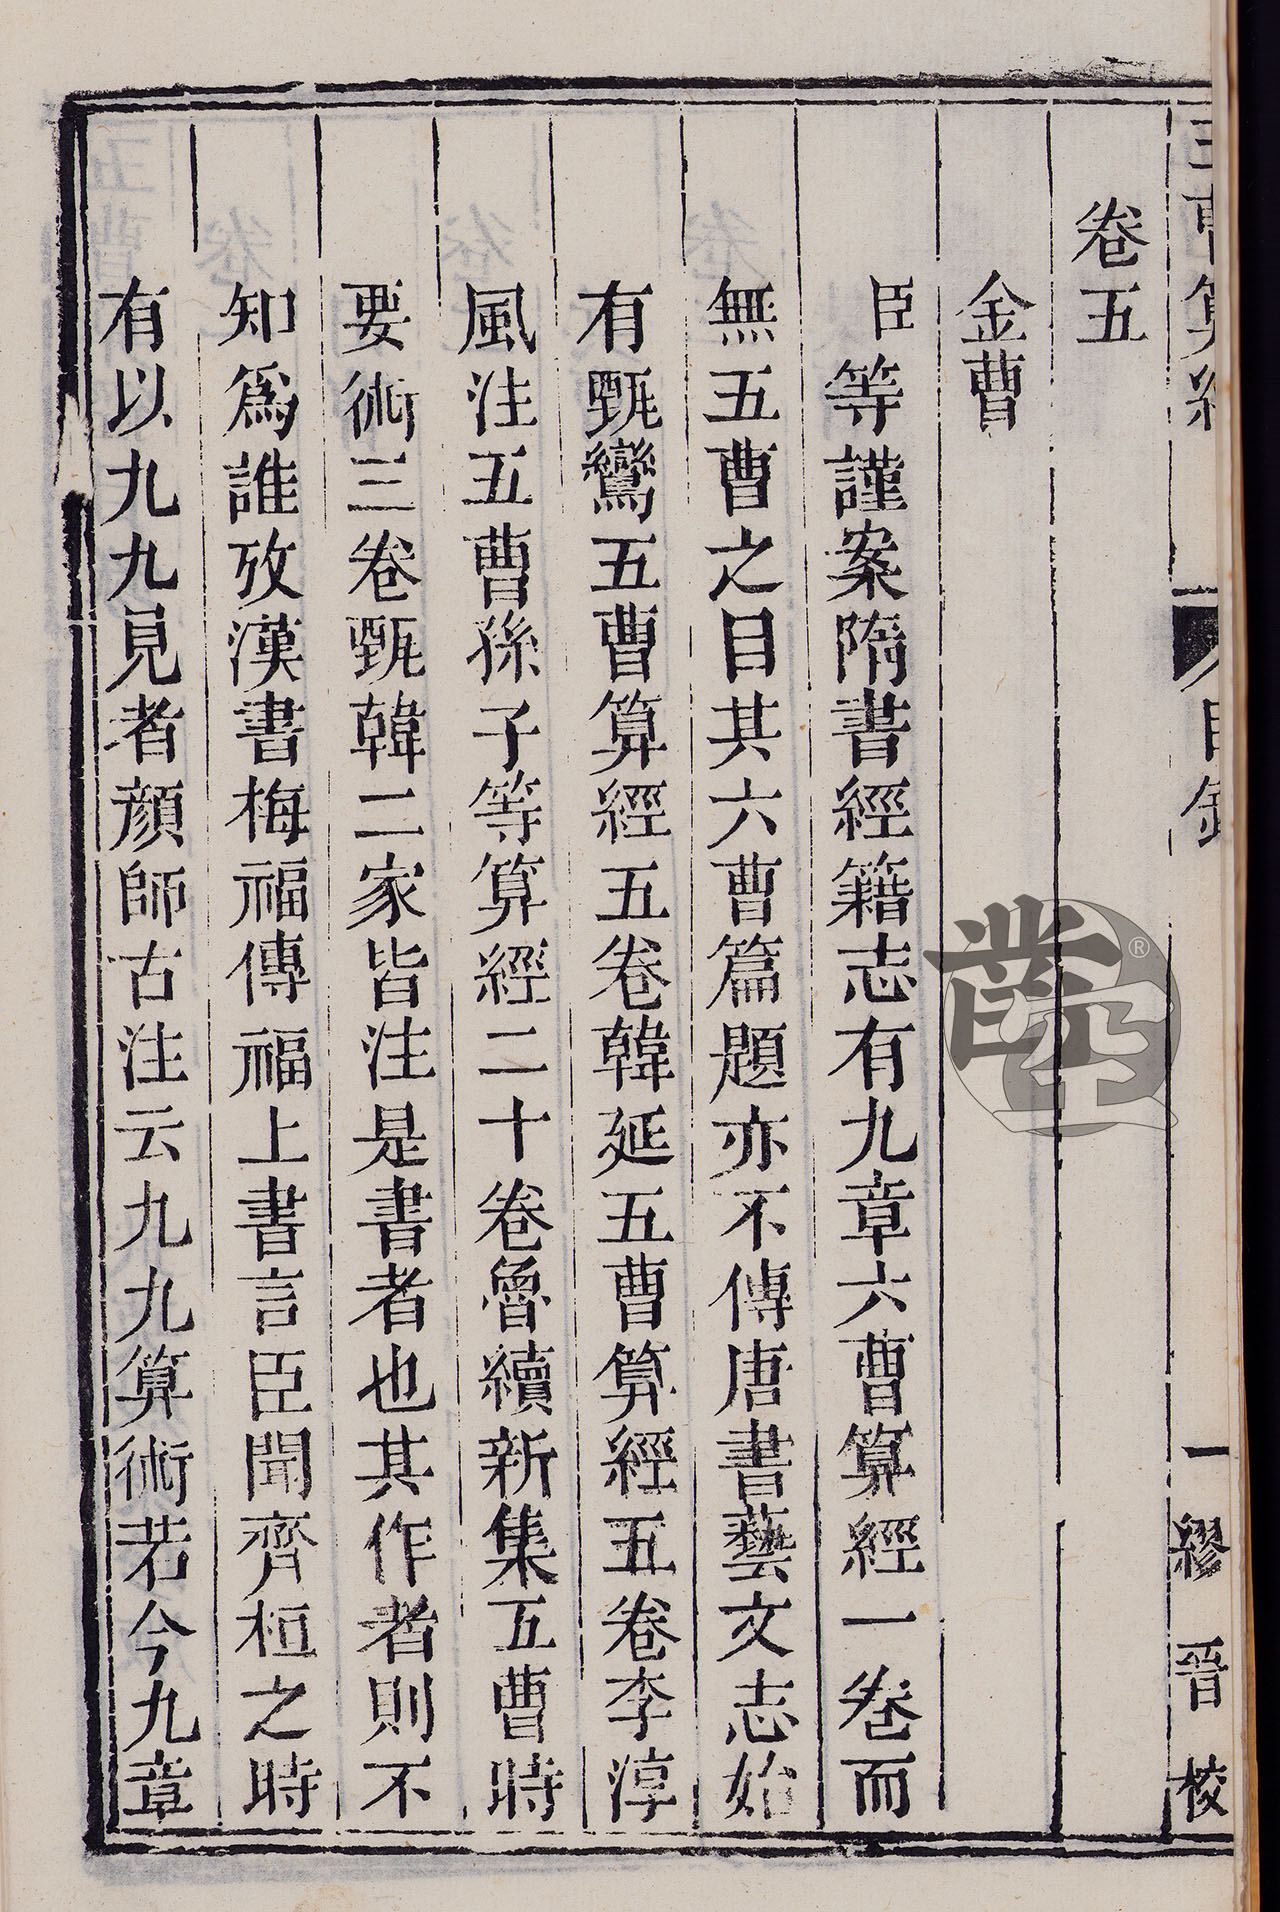 五曹算經 目錄 一 繆晉校
卷五
金曹
臣等謹案隋書經籍志有九章六曹算經一卷而
無五曹之目其六曹篇題亦不傳唐書藝文志始
有甄鸞五曹算經五卷韓延五曹算經五卷李淳
風注五曹孫子等算經二十卷魯續新集五曹時
要術三卷甄韓二家皆注是書者也其作者則不
知為誰攷漢書梅福傳福上書言臣聞齊桓之時
有以九九見者顏師古注云九九算術若今九章